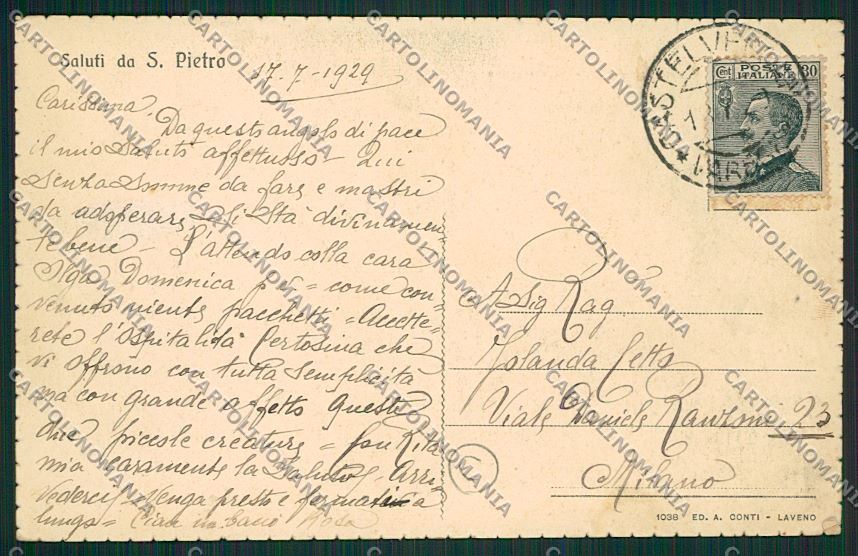 Saluti da S. Pietro
17.7-1929
Carissima
Da questo angolo di pace
il mio saluto affettuoso - Qui
senza somme da fare e mastri
da adoperare si sta divinamen
te bene - L'attendo colla cara
Olga Domenica p.v. = come con-
venuto niente pacchetti = Accette-
rete l'ospitalità Certosina che
vi offrono con tutta semplicità
ma con grande affetto queste
due piccole creature =
mia caramente la saluto Arri
vederci venga presto e
lunga = Ciao Rosa
CASTELVECCANA
VARESE
POSTE
ITALIANE
Cent 30
A Sig Rag
Jolanda Cetto
Viale Daniele Ranzoni 23
Milano
1038 ED. A. CONTI - LAVENO
CARTOLINOMANIA